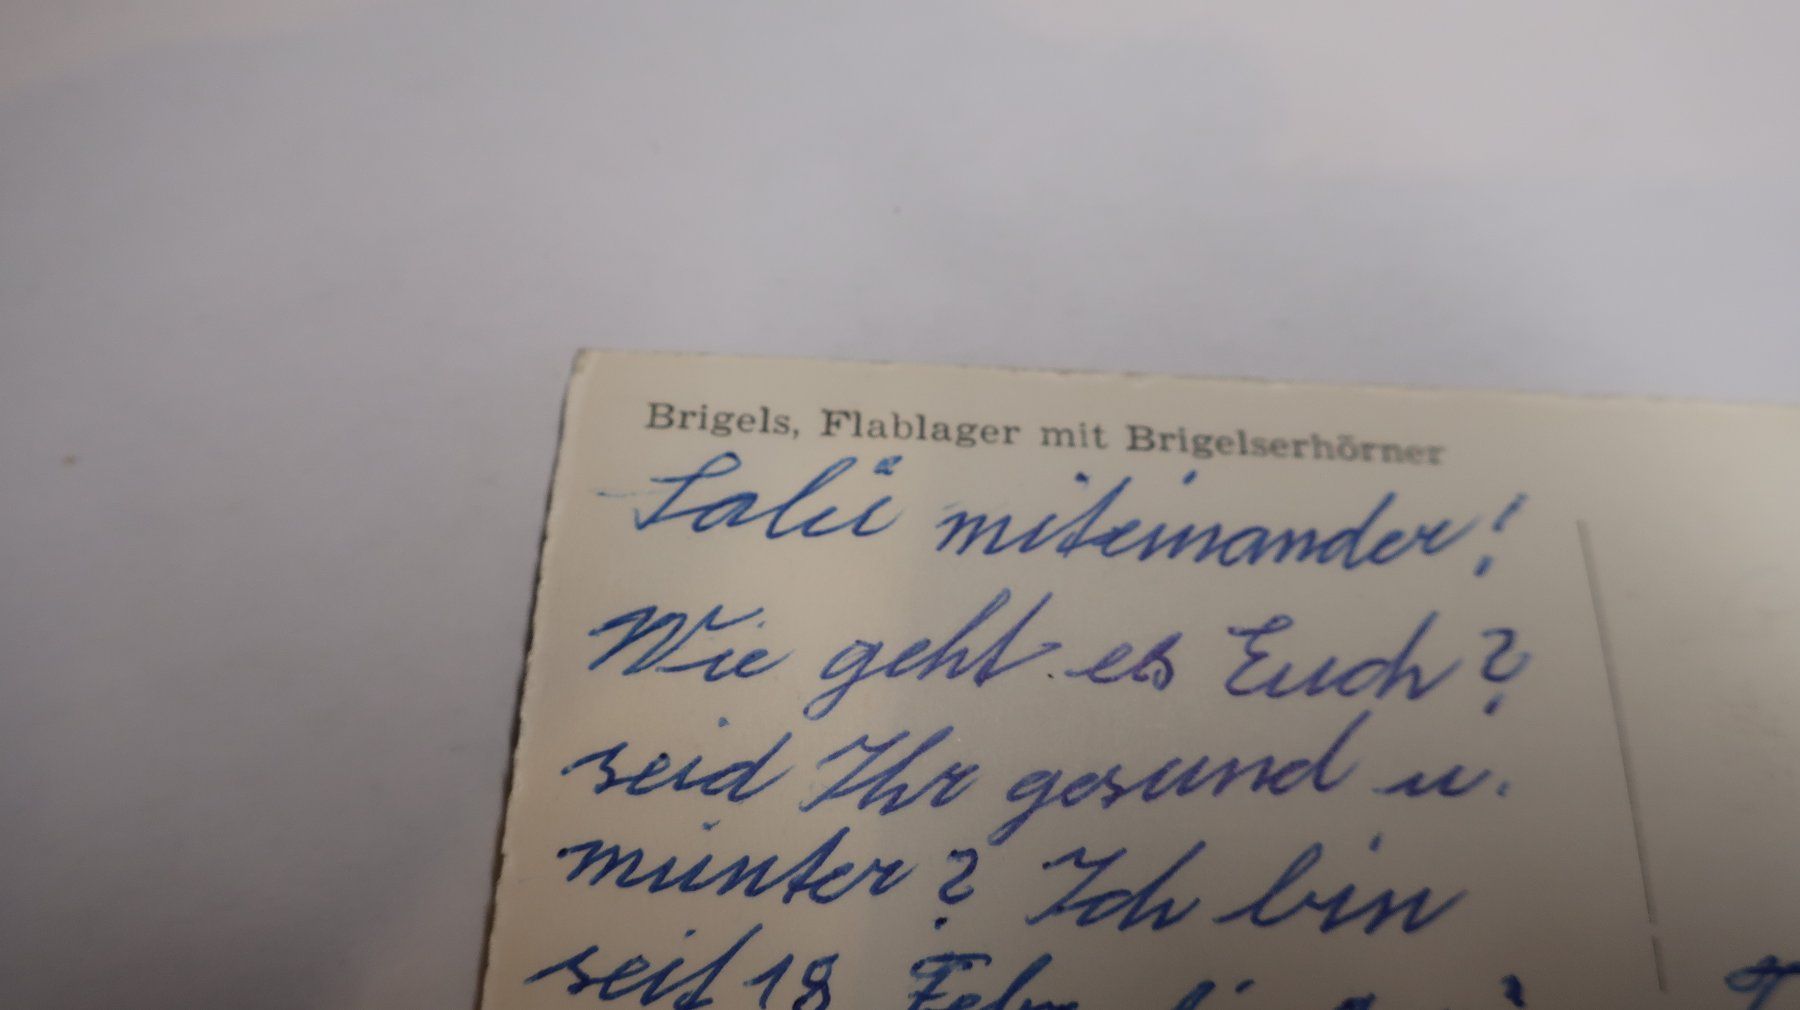 Brigels, Flablager mit Brigelserhörner
Salü miteinander!
Wie geht es Euch?
seid Ihr gesund u.
munter? Ich bin
seit 18